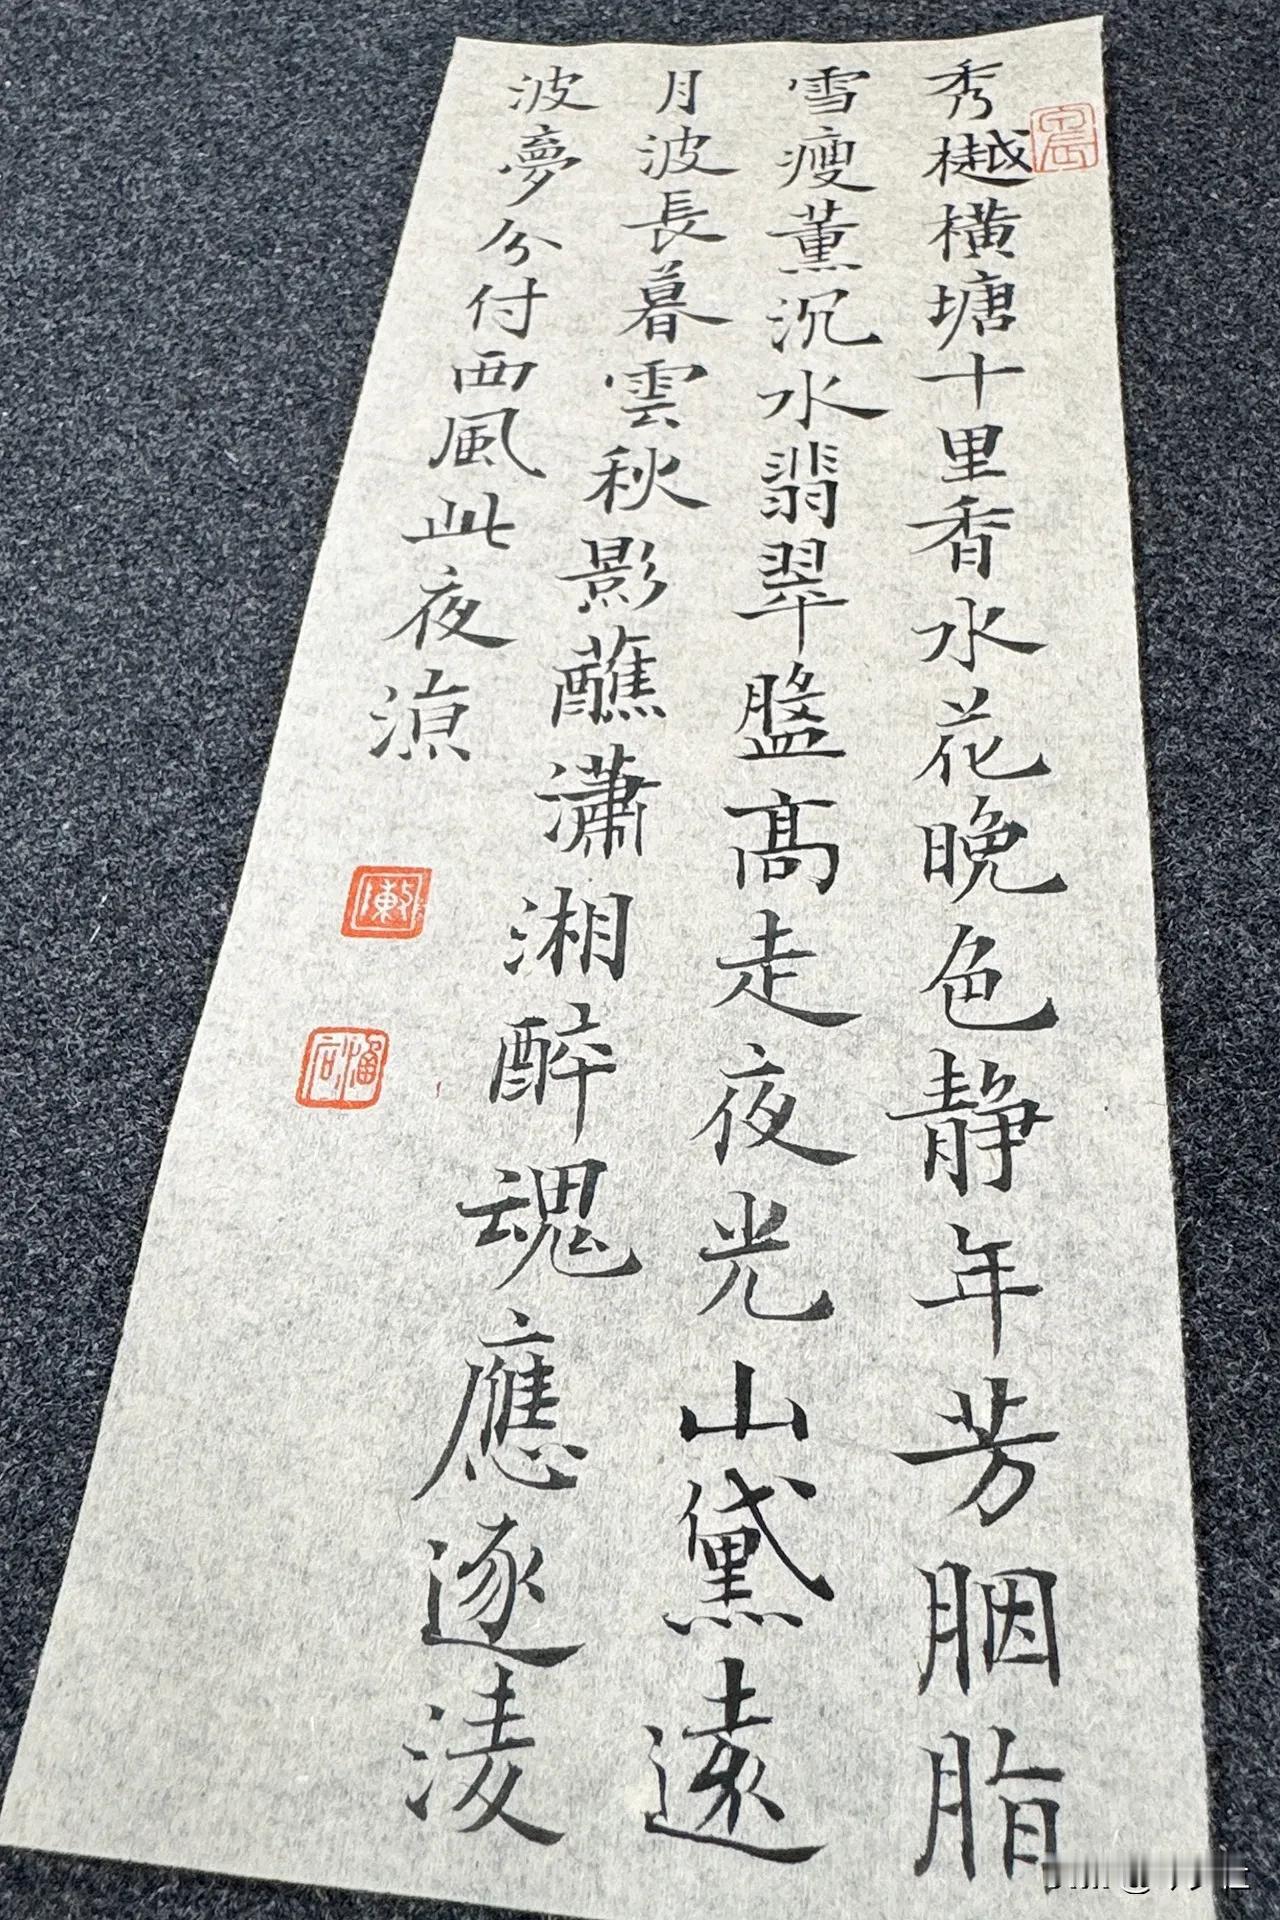 秀樾橫塘十里香水花晚色靜年芳胭脂
雪瘦薰沉水翡翠盤高走夜光山黛遠
月波長暮雲秋影蘸瀟湘醉魂應逐淩
波夢分付西風此夜涼